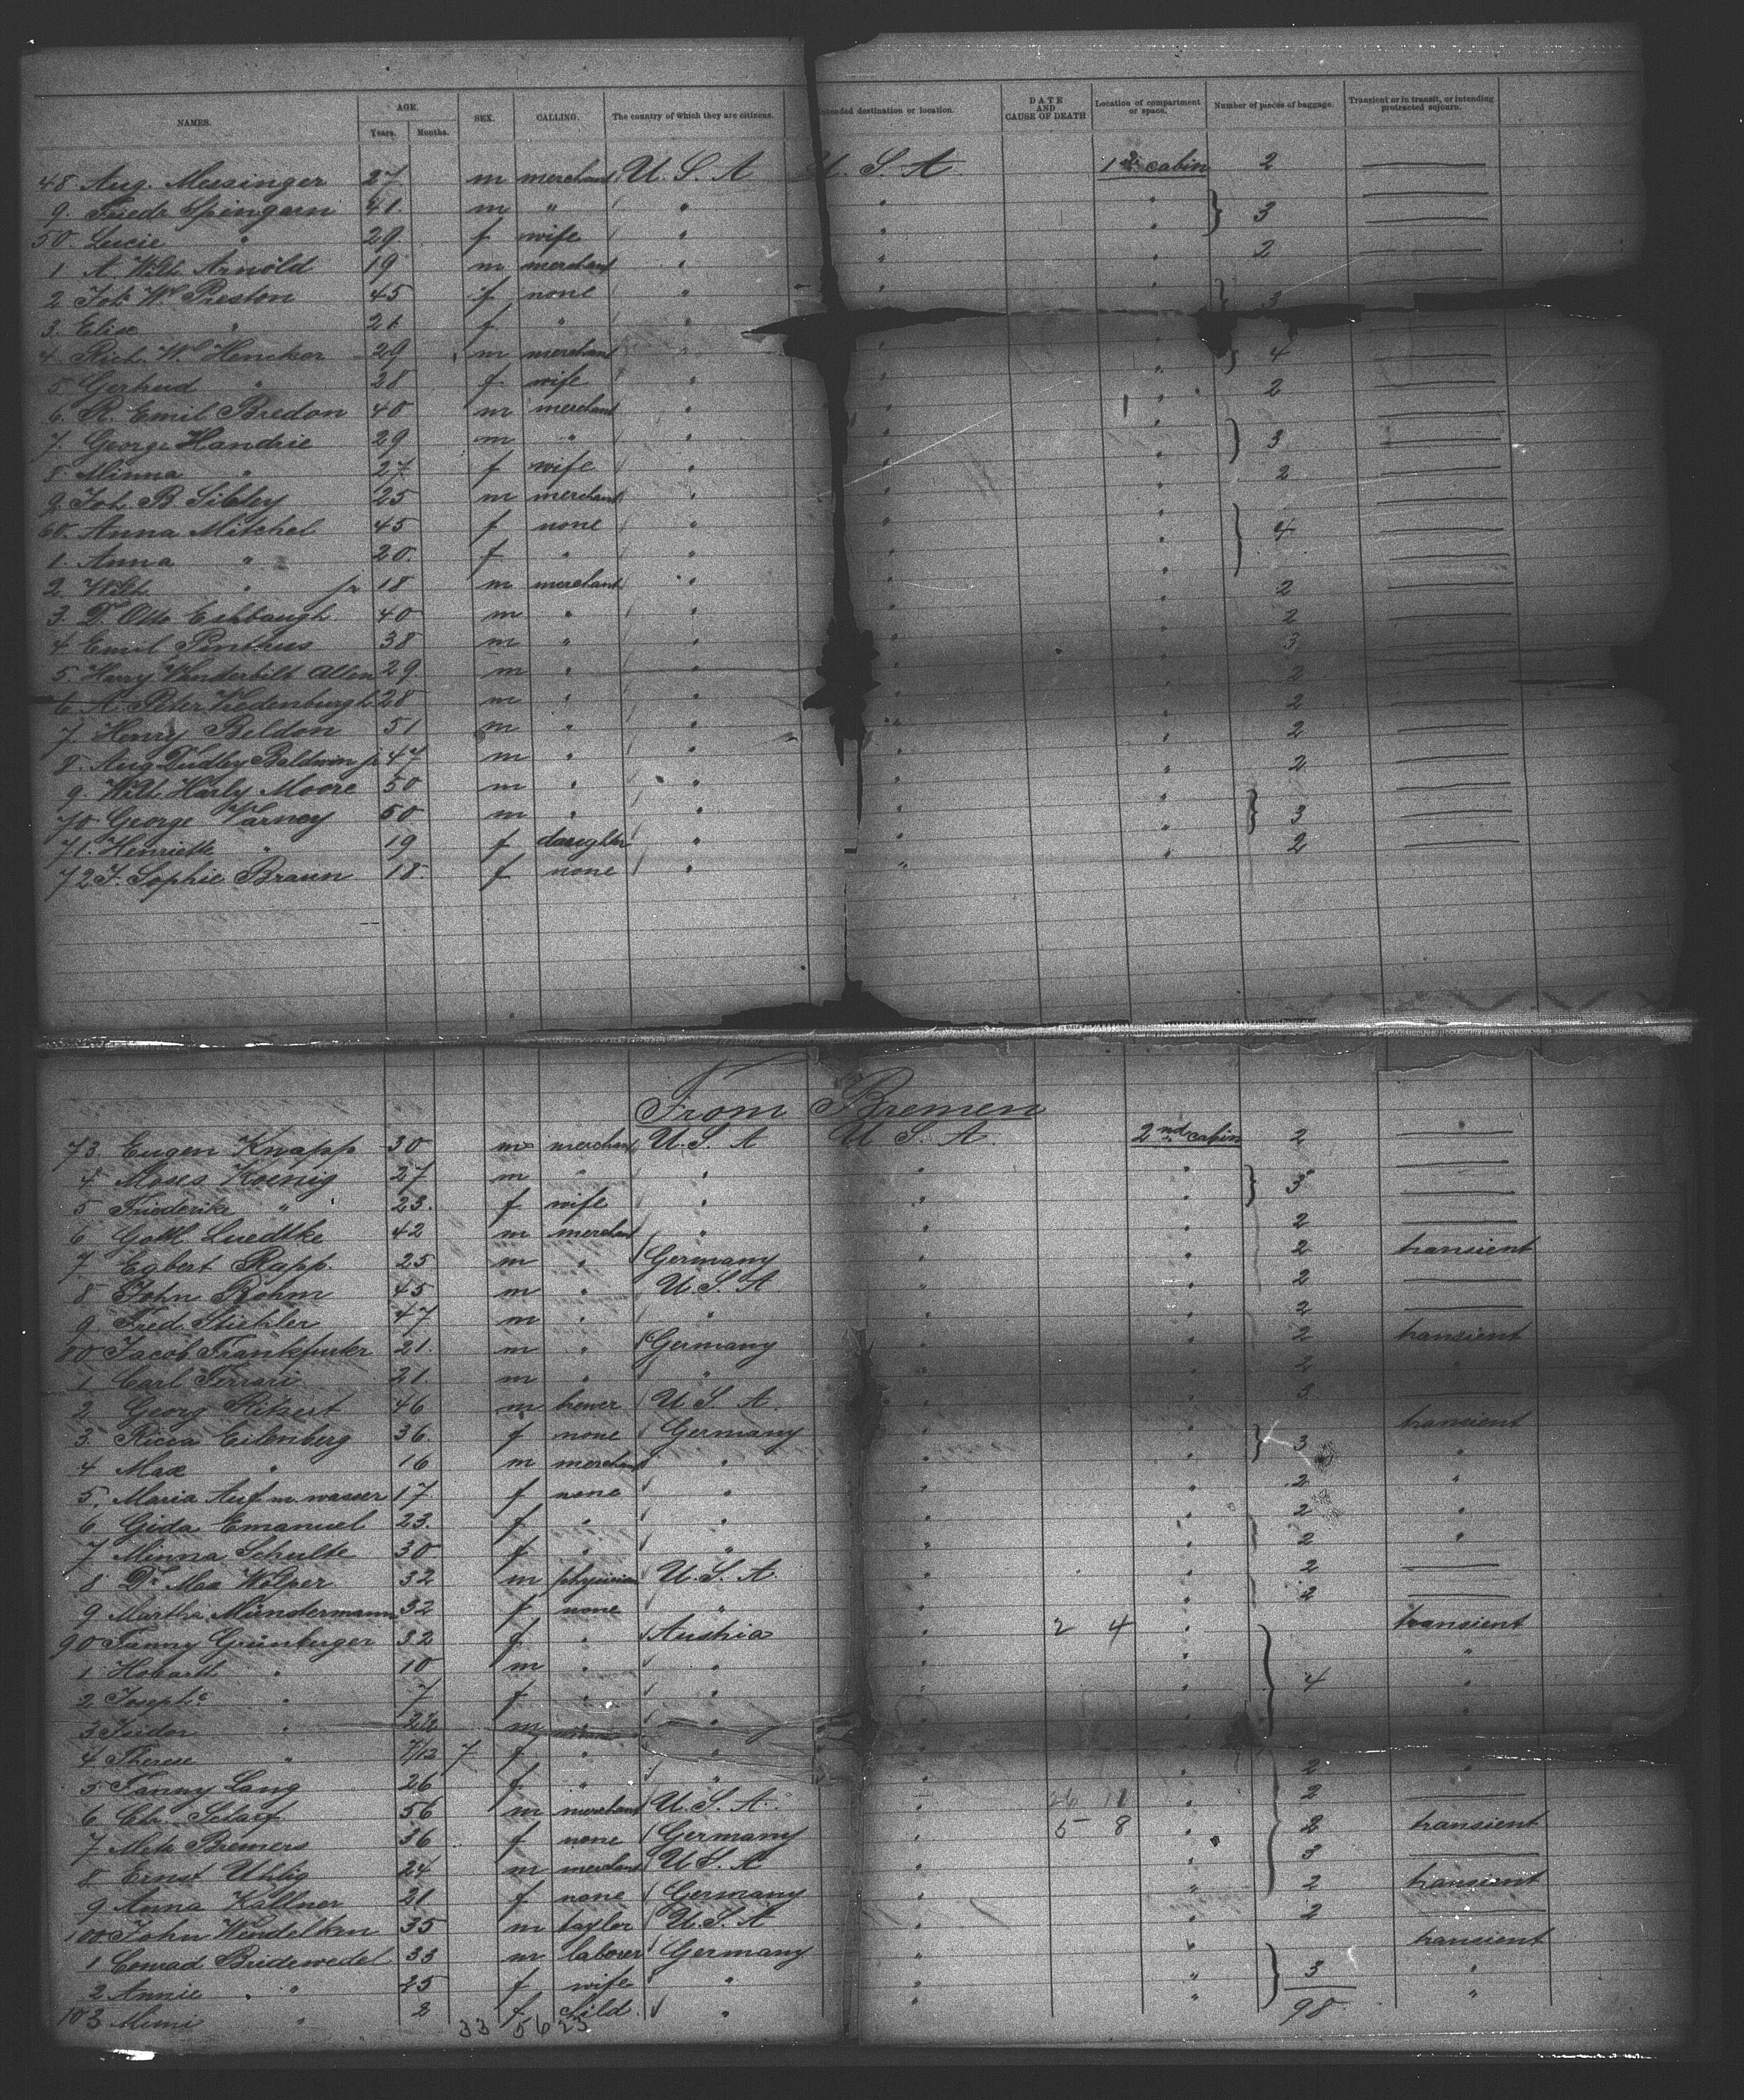 NAMES. AGE. Years. Months. SEX. CALLING. The country of which they are citizens. Intended destination or location. DATE AND CAUSE OF DEATH Location of compartment or space. Number of pieces of baggage. Transient or in transit, or intending protracted sojourn.
48. Aug. Messinger 27 m merchant U. S. A U. S. A 1st cabin 2
9. Friedr Spingarn 41. m " " " " } 3
50. Lucie " 29 f wife " " "
1 A. Wilh. Arnold 19 m merchant " " " 2
2 Joh. Wm Preston 45 f none " " " } 3
3. Elise " 26 f " "
4. Rich. Wm Hencker 29 m merchant " " " } 4
5 Gertrud " 28 f wife " " "
6. R. Emil Bredon 40 m merchant " " " 2
7. George Handrie 29 m " " " " } 3
8 Minna " 27 f wife " " "
9. Joh. B. Sibley 25 m merchant " " " 2
60. Anna Mitchel 45 f none " " " } 4
1. Anna " 20. f " " " "
2 Wilh. " jr 18 m merchant " " "
3. Dr. Otto Eshbaugh 40 m " " " " 2
4 Emil Pinthus 38 m " " " " 2
5. Harry Vanderbilt Allen 29 m " " " " 3
6 A. Peter Vredenburgh 28 m " " " " 2
7. Henry Beldon 51 m " " " " 2
8. Aug Dudley Baldwin jr 47 m " " " " 2
9. Will. Harly Moore 50 m " " " " 2
70 George Varney 50 m " " " " } 3
71. Henriette " 19 f daughter " " "
72 F. Sophie Braun 18. f none " " " 2
From Bremen
73. Eugen Knapp 30 m merchant U. S. A U S. A. 2nd cabin 2
4 Moses Koenig 27 m " " " " } 3
5 Friederike " 23. f wife " " "
6 Gottl. Luedtke 42 m merchant " " " 2
7 Egbert Rapp. 25 m " Germany " " 2 transient
8 John Röhm 45 m " U. S. A " " 2
9 Fred. Stiehler 47 m " " " " 2
80 Jacob Frankfurter 21. m " Germany " " 2 transient
1 Carl Ferrari 21 m " " " " 2 "
2 Georg Ritzert 46 m brewer U. S. A. " " 3
3. Ricca Eilenberg 36. f none Germany " " } 3 transient
4 Max " 16 m merchant " " " "
5. Maria Aufm wasser 17 f none " " " 2 "
6 Gida Emanuel 23. f " " " " 2 "
7 Minna Schulte 30 f " " " " 2 "
8 Dr. Max Wölper 32 m physician U. S. A " " 2
9 Martha Mündermann 32 f none " " " 2
90 Fanny Grünberger 32 f " Austria " 2 4 " } 4 transient
1 " 10 m " " " " "
2 Josephe " 7 f " " " " "
3 " m " " "
4 Therese " 7/12 7 f " " " "
5 Fanny Lang 26 f " " " " 2 "
6 Chr. Scharf 56 m merchant U. S. A. " 26 11 " 2
7 Meta Bremers 36 f none Germany " 5 8 " 2 transient
8 Ernst Uhlig 24 m merchant U. S. A " " 3
9 Anna Kallner 21 f none Germany " " 2 transient
100 John Wendelken 35 m taylor U. S. A " " 2
1 Conrad Bridewedel 33 m laborer Germany " " } 3 transient
2 Annie " 25 f wife " " " "
103 Mimi " 2 f child " " " "
33 56 23 98